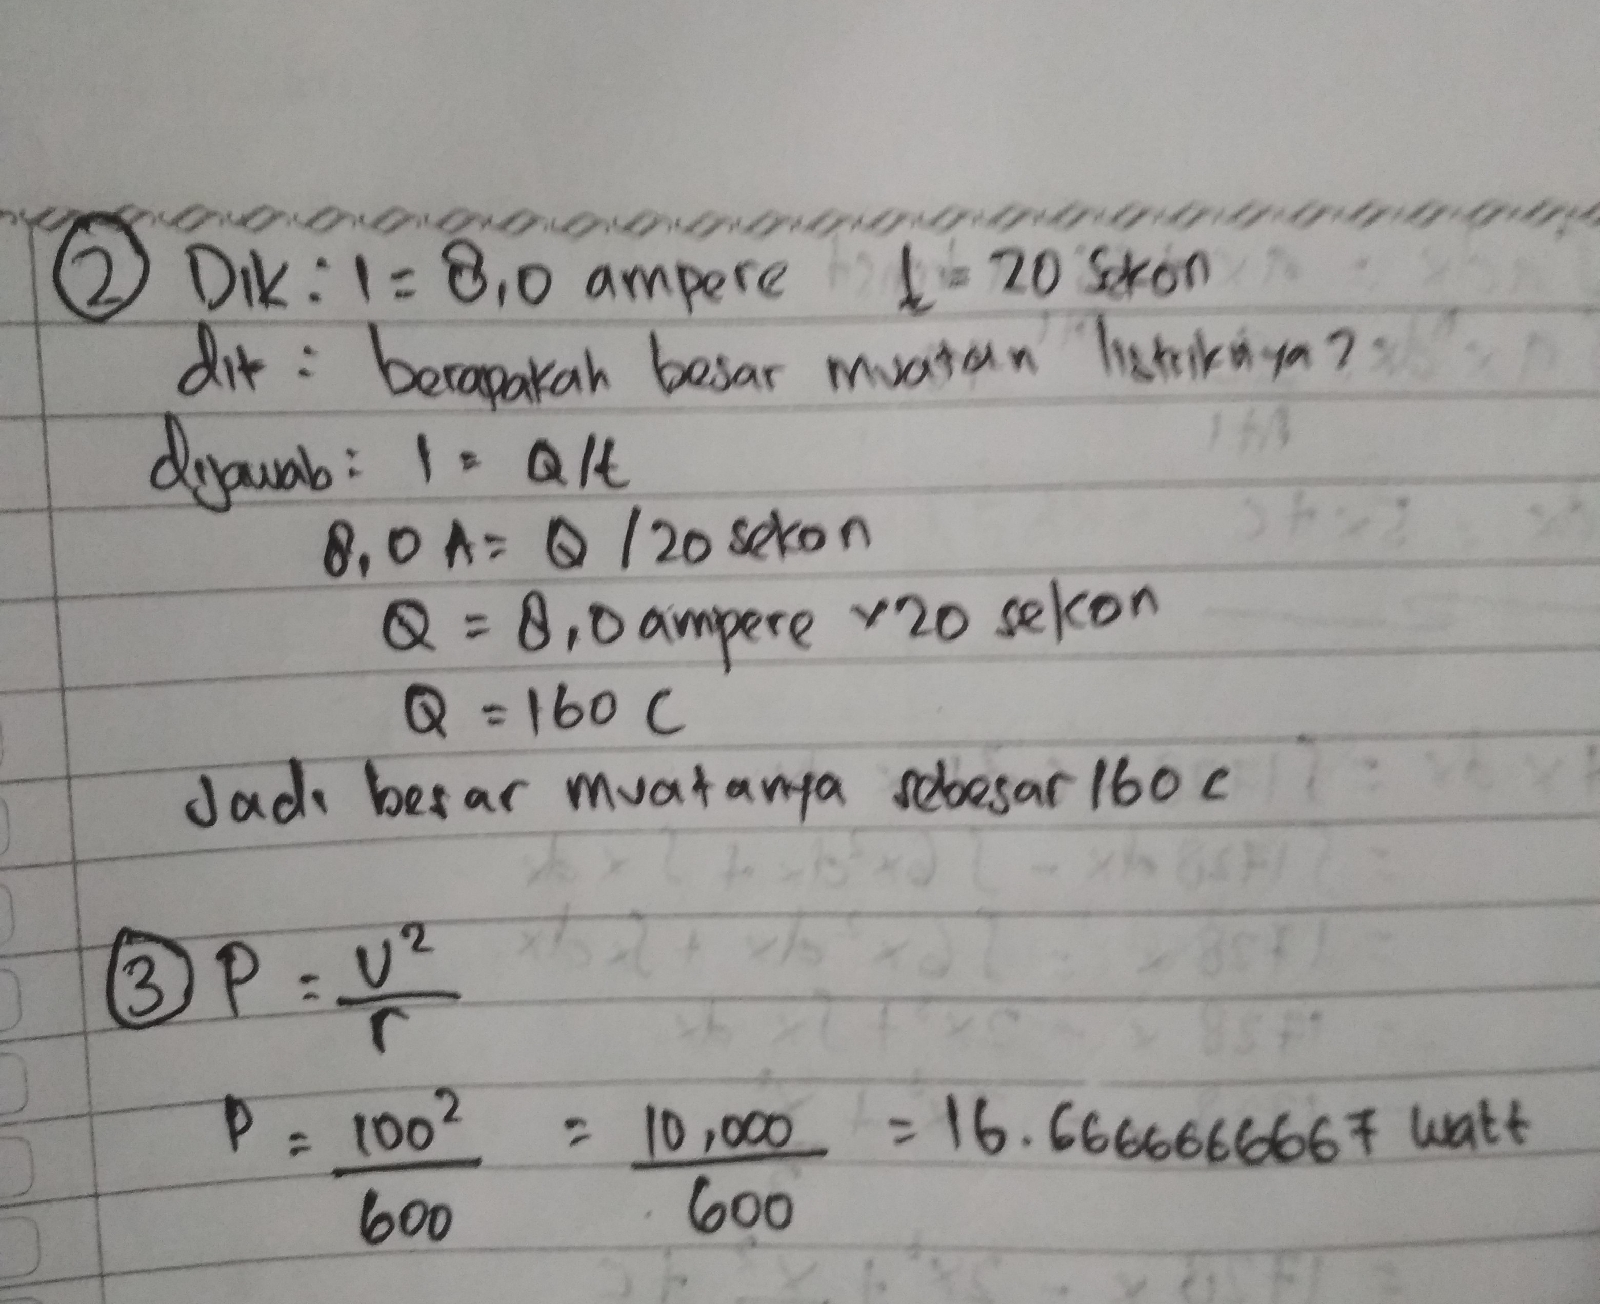 ② Dik : I = 8,0 ampere t = 20 sekon
dit : berapakah besar muatan listriknya?
dijawab : I = Q/t
8,0 A = Q / 20 sekon
Q = 8,0 ampere x 20 sekon
Q = 160 C
Jadi besar muatanya sebesar 160 c
③ P = V² / r
P = 100² / 600 = 10,000 / 600 = 16.6666666667 watt